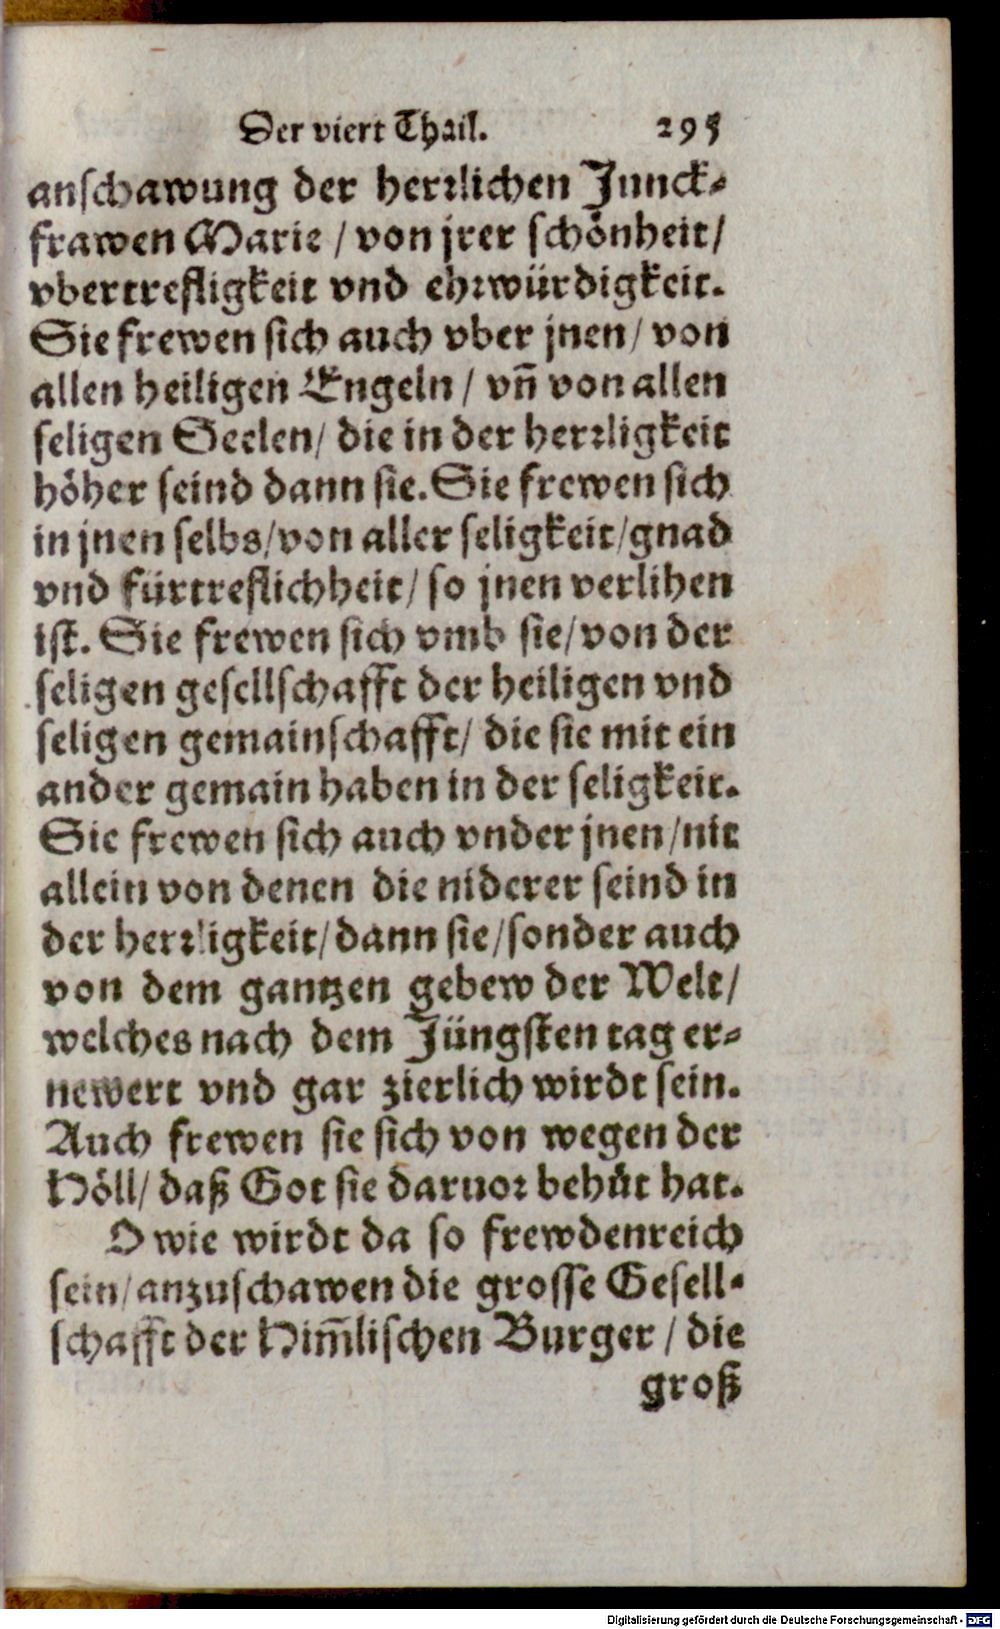 Der viert Thail. 295
anschawung der herrlichen Junck-
frawen Marie / von jrer schönheit /
vbertrefligkeit vnd ehrwürdigkeit.
Sie frewen sich auch vber jnen / von
allen heiligen Engeln / vn̄ von allen
seligen Seelen / die in der herrligkeit
höher seind dann sie. Sie frewen sich
in jnen selbs / von aller seligkeit / gnad
vnd fürtreflichheit / so jnen verlihen
ist. Sie frewen sich vmb sie / von der
seligen gesellschafft der heiligen vnd
seligen gemainschafft / die sie mit ein
ander gemain haben in der seligkeit.
Sie frewen sich auch vnder jnen / nit
allein von denen die niderer seind in
der herrligkeit / dann sie / sonder auch
von dem gantzen gebew der Welt /
welches nach dem Jüngsten tag er-
newert vnd gar zierlich wirdt sein.
Auch frewen sie sich von wegen der
Höll / daß Got sie daruor behüt hat.
O wie wirdt da so frewdenreich
sein / anzuschawen die grosse Gesell-
schafft der Him̄lischen Burger / die
groß
Digitalisierung gefördert durch die Deutsche Forschungsgemeinschaft - DFG